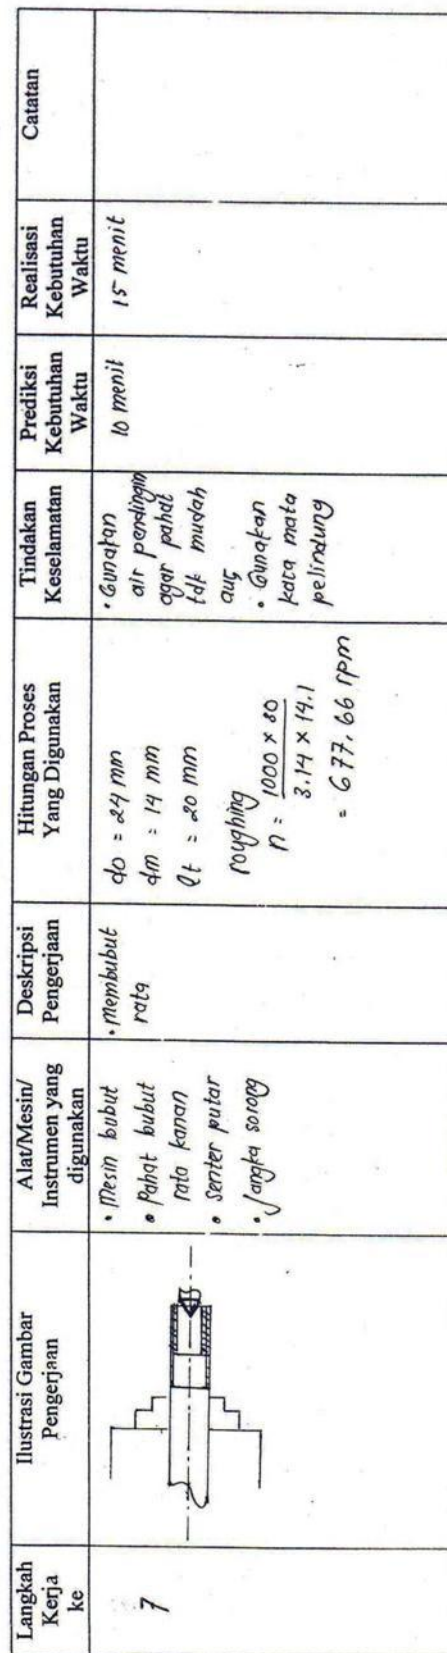 Langkah
Kerja
ke
Ilustrasi Gambar
Pengerjaan
Alat/Mesin/
Instrumen yang
digunakan
Deskripsi
Pengerjaan
Hitungan Proses
Yang Digunakan
Tindakan
Keselamatan
Prediksi
Kebutuhan
Waktu
Realisasi
Kebutuhan
Waktu
Catatan
7
• Mesin bubut
• Pahat bubut
rata kanan
• Senter putar
• Jangka sorong
• Membubut
rata
do = 24 mm
dm = 14 mm
lt = 20 mm
roughing
n = 1000 x 30
3.14 x 14.1
= 677,66 rpm
• Gunakan
air pendingin
agar pahat
tdk mudah
aus
• Gunakan
kaca mata
pelindung
10 menit
15 menit